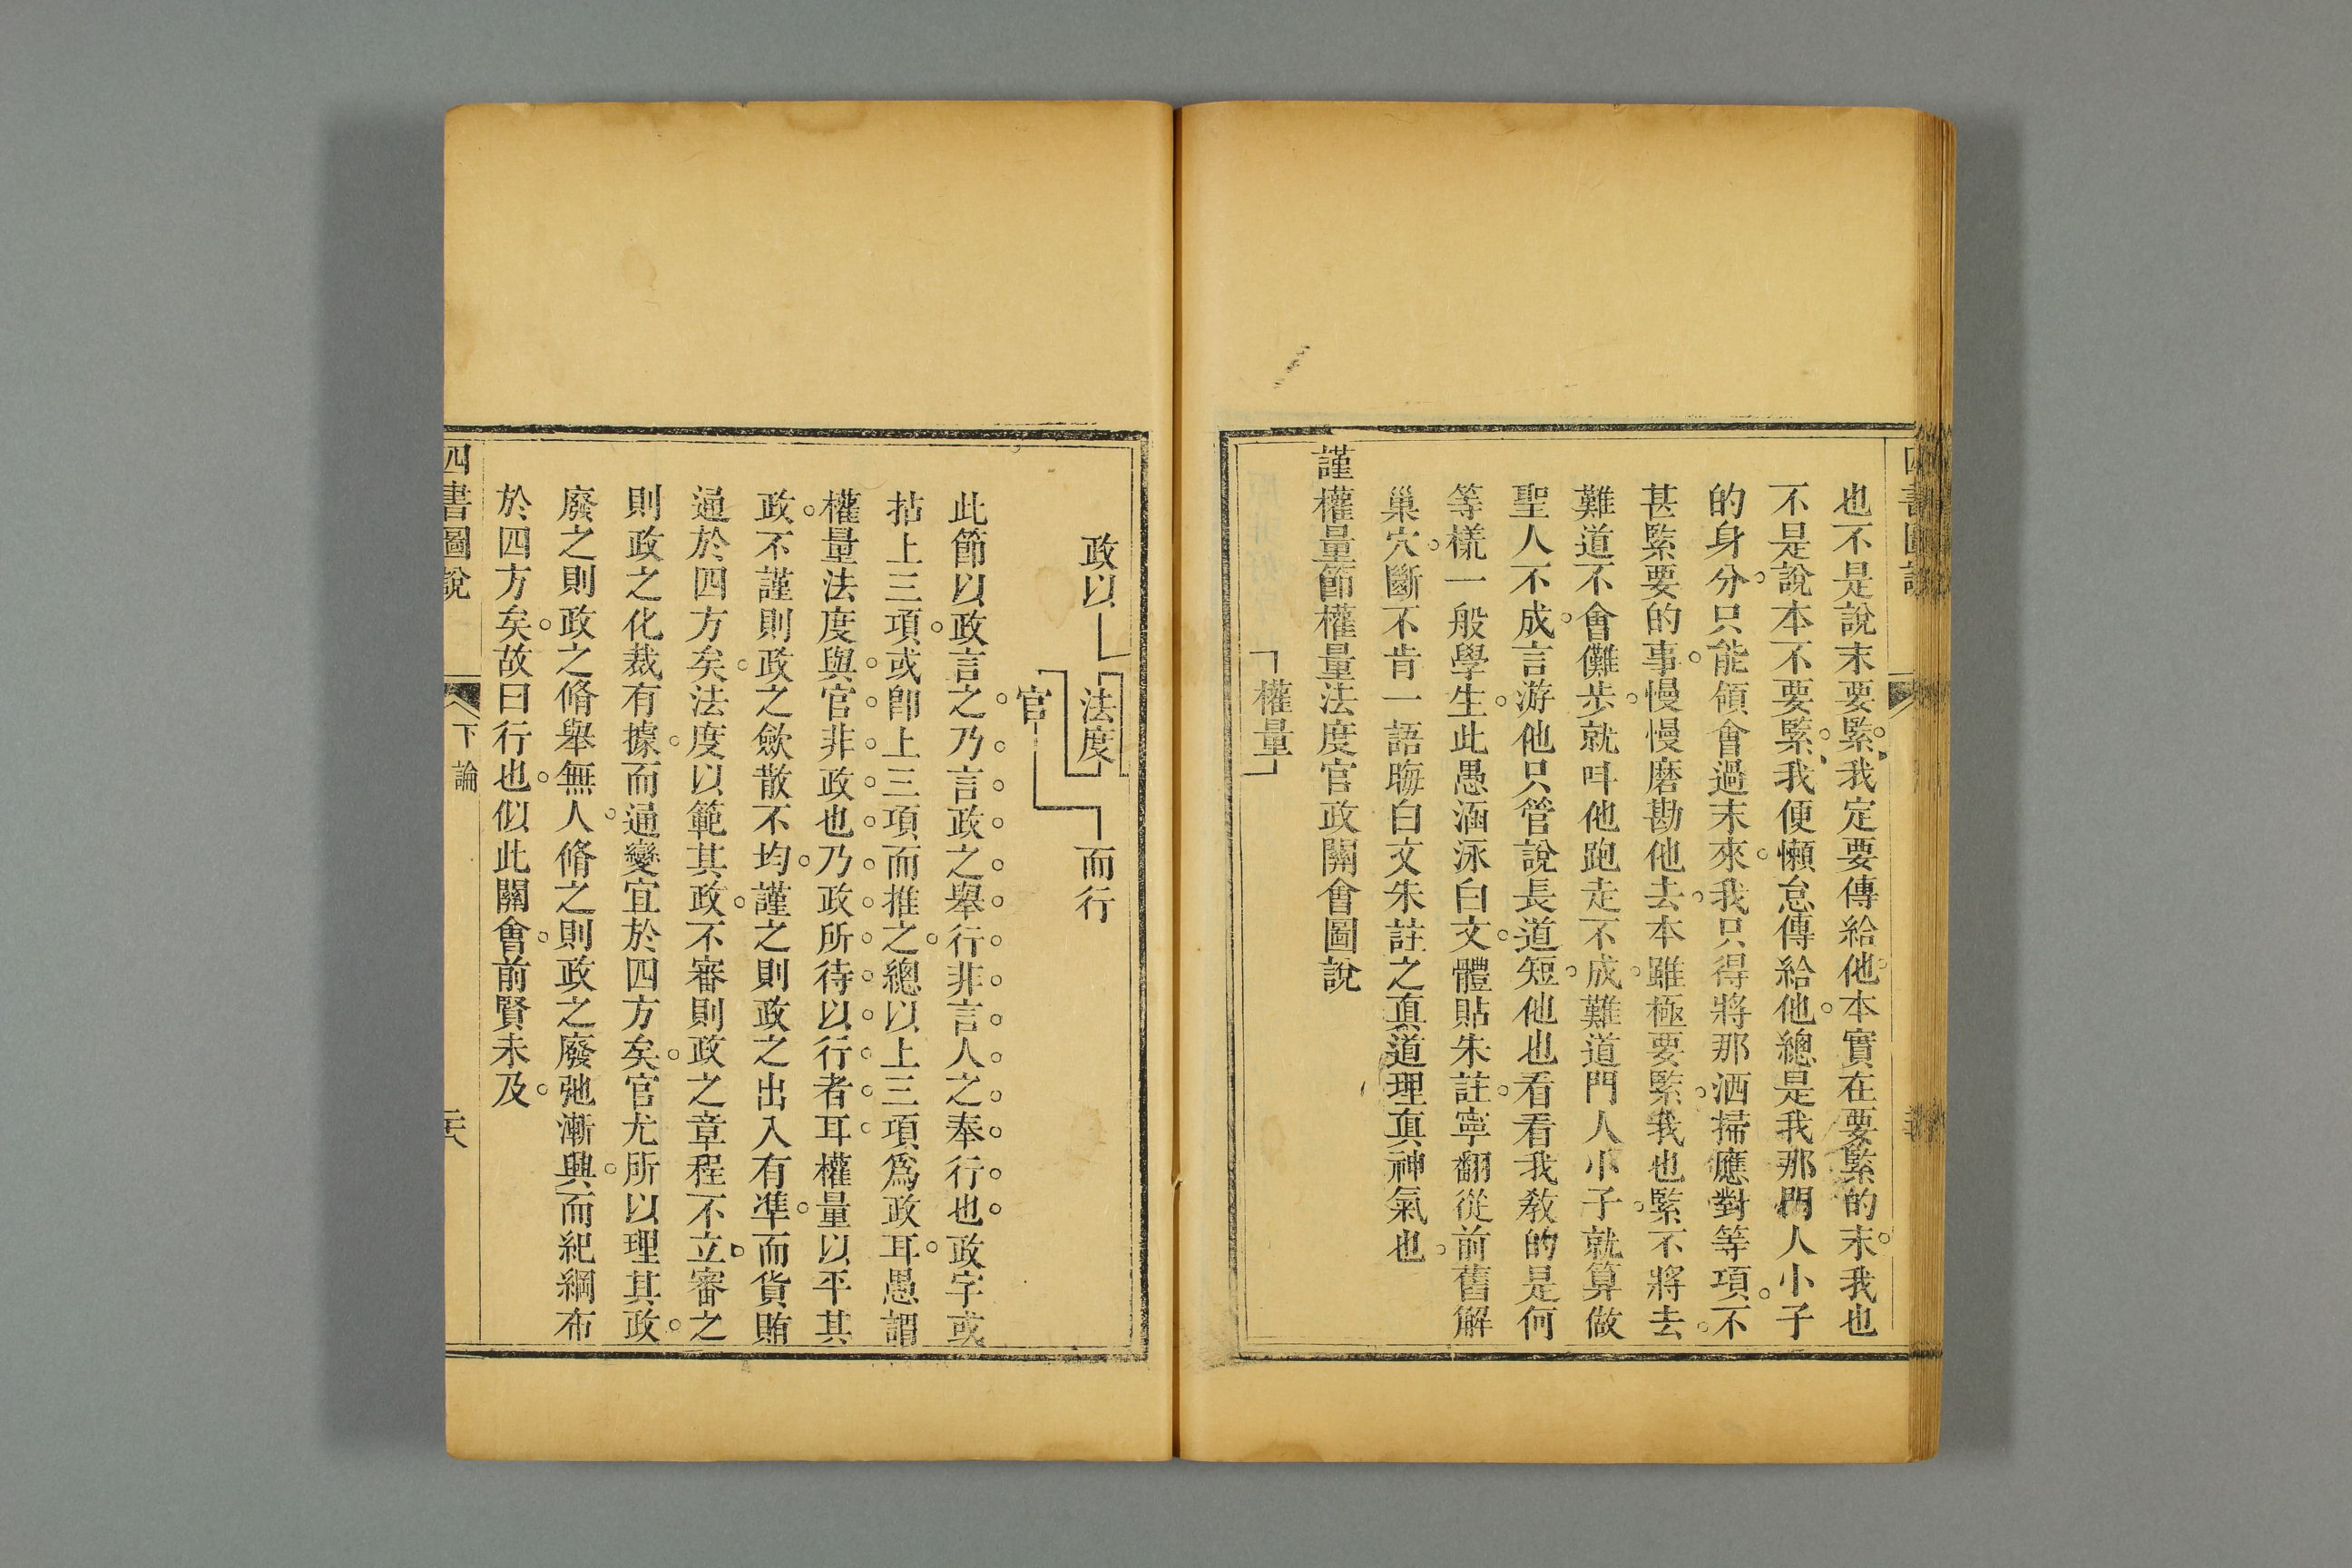 四書圖說
也不是說末要緊我定要傳給他本實在要緊的末我也
不是說本不要緊我便懶怠傳給他總是我那門人小子
的身分只能領會過末來我只得將那洒掃應對等項不
甚緊要的事慢慢磨勘他去本雖極要緊我也緊不將去
難道不會儺步就呌他跑走不成難道門人小子就算做
聖人不成言游他只管說長道短他也看看我敎的是何
等樣一般學生此愚涵泳白文體貼朱註寧翻從前舊解
巢穴斷不肯一語晦白文朱註之眞道理眞神氣也
謹權量節權量法度官政關會圖說
權量
政以 法度 而行
官
此節以政言之乃言政之舉行非言人之奉行也政字或
拈上三項或卽上三項而推之總以上三項爲政耳愚謂
權量法度與官非政也乃政所待以行者耳權量以平其
政不謹則政之歛散不均謹之則政之出入有準而貨賄
通於四方矣法度以範其政不審則政之章程不立審之
則政之化裁有據而通變宜於四方矣官尤所以理其政
廢之則政之脩舉無人脩之則政之廢弛漸興而紀綱布
於四方矣故曰行也似此關會前賢未及
四書圖說 下論